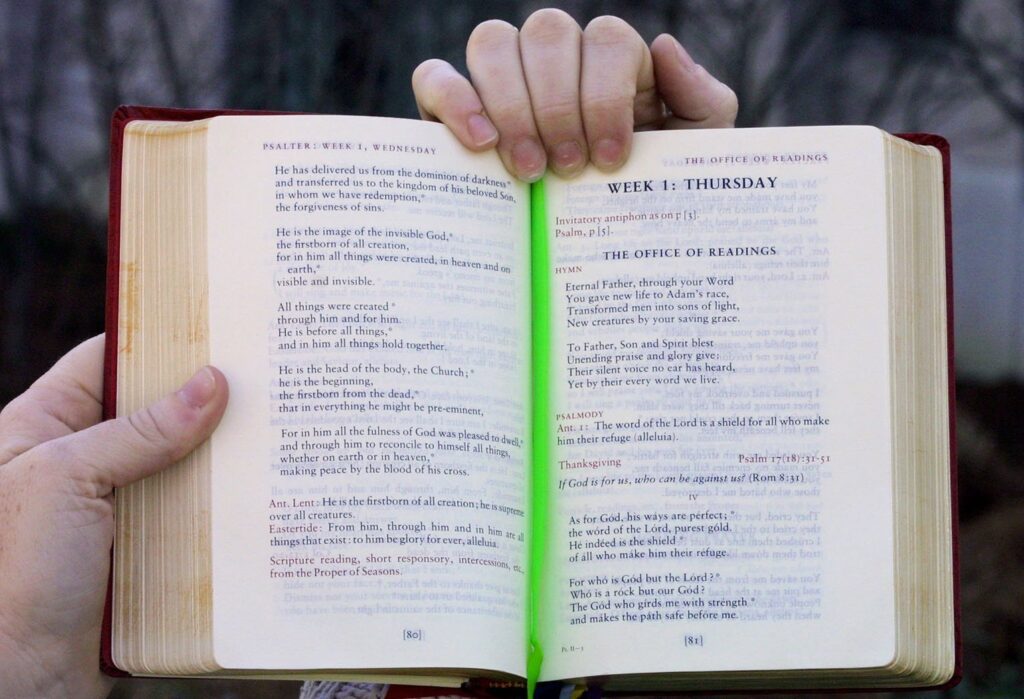 PSALTER: WEEK 1, WEDNESDAY
He has delivered us from the dominion of darkness*
and transferred us to the kingdom of his beloved Son,
in whom we have redemption,*
the forgiveness of sins.
He is the image of the invisible God,*
the firstborn of all creation,
for in him all things were created, in heaven and on
earth,*
visible and invisible.
All things were created *
through him and for him.
He is before all things,*
and in him all things hold together.
He is the head of the body, the Church;*
he is the beginning,
the firstborn from the dead,*
that in everything he might be pre-eminent,
For in him all the fulness of God was pleased to dwell,*
and through him to reconcile to himself all things,
whether on earth or in heaven,*
making peace by the blood of his cross.
Ant. Lent: He is the firstborn of all creation; he is supreme
over all creatures.
Eastertide: From him, through him and in him are all
things that exist: to him be glory for ever, alleluia.
Scripture reading, short responsory, intercessions, etc.,
from the Proper of Seasons.
[80]
THE OFFICE OF READINGS
WEEK 1: THURSDAY
Invitatory antiphon as on p [3].
Psalm, p [5].
THE OFFICE OF READINGS
HYMN
Eternal Father, through your Word
You gave new life to Adam's race,
Transformed men into sons of light,
New creatures by your saving grace.
To Father, Son and Spirit blest
Unending praise and glory give:
Their silent voice no ear has heard,
Yet by their every word we live.
PSALMODY
Ant. 1: The word of the Lord is a shield for all who make
him their refuge (alleluia).
Thanksgiving Psalm 17(18):31-51
If God is for us, who can be against us? (Rom 8:31)
IV
As for God, his wáys are pérfect; *
the wórd of the Lórd, purest góld.
Hé indéed is the shíeld *
of áll who máke him their réfuge.
For whó is Gód but the Lórd? *
Whó is a róck but our Gód?
The Gód who gírds me with stréngth *
and mákes the páth safe befóre me.
[81]